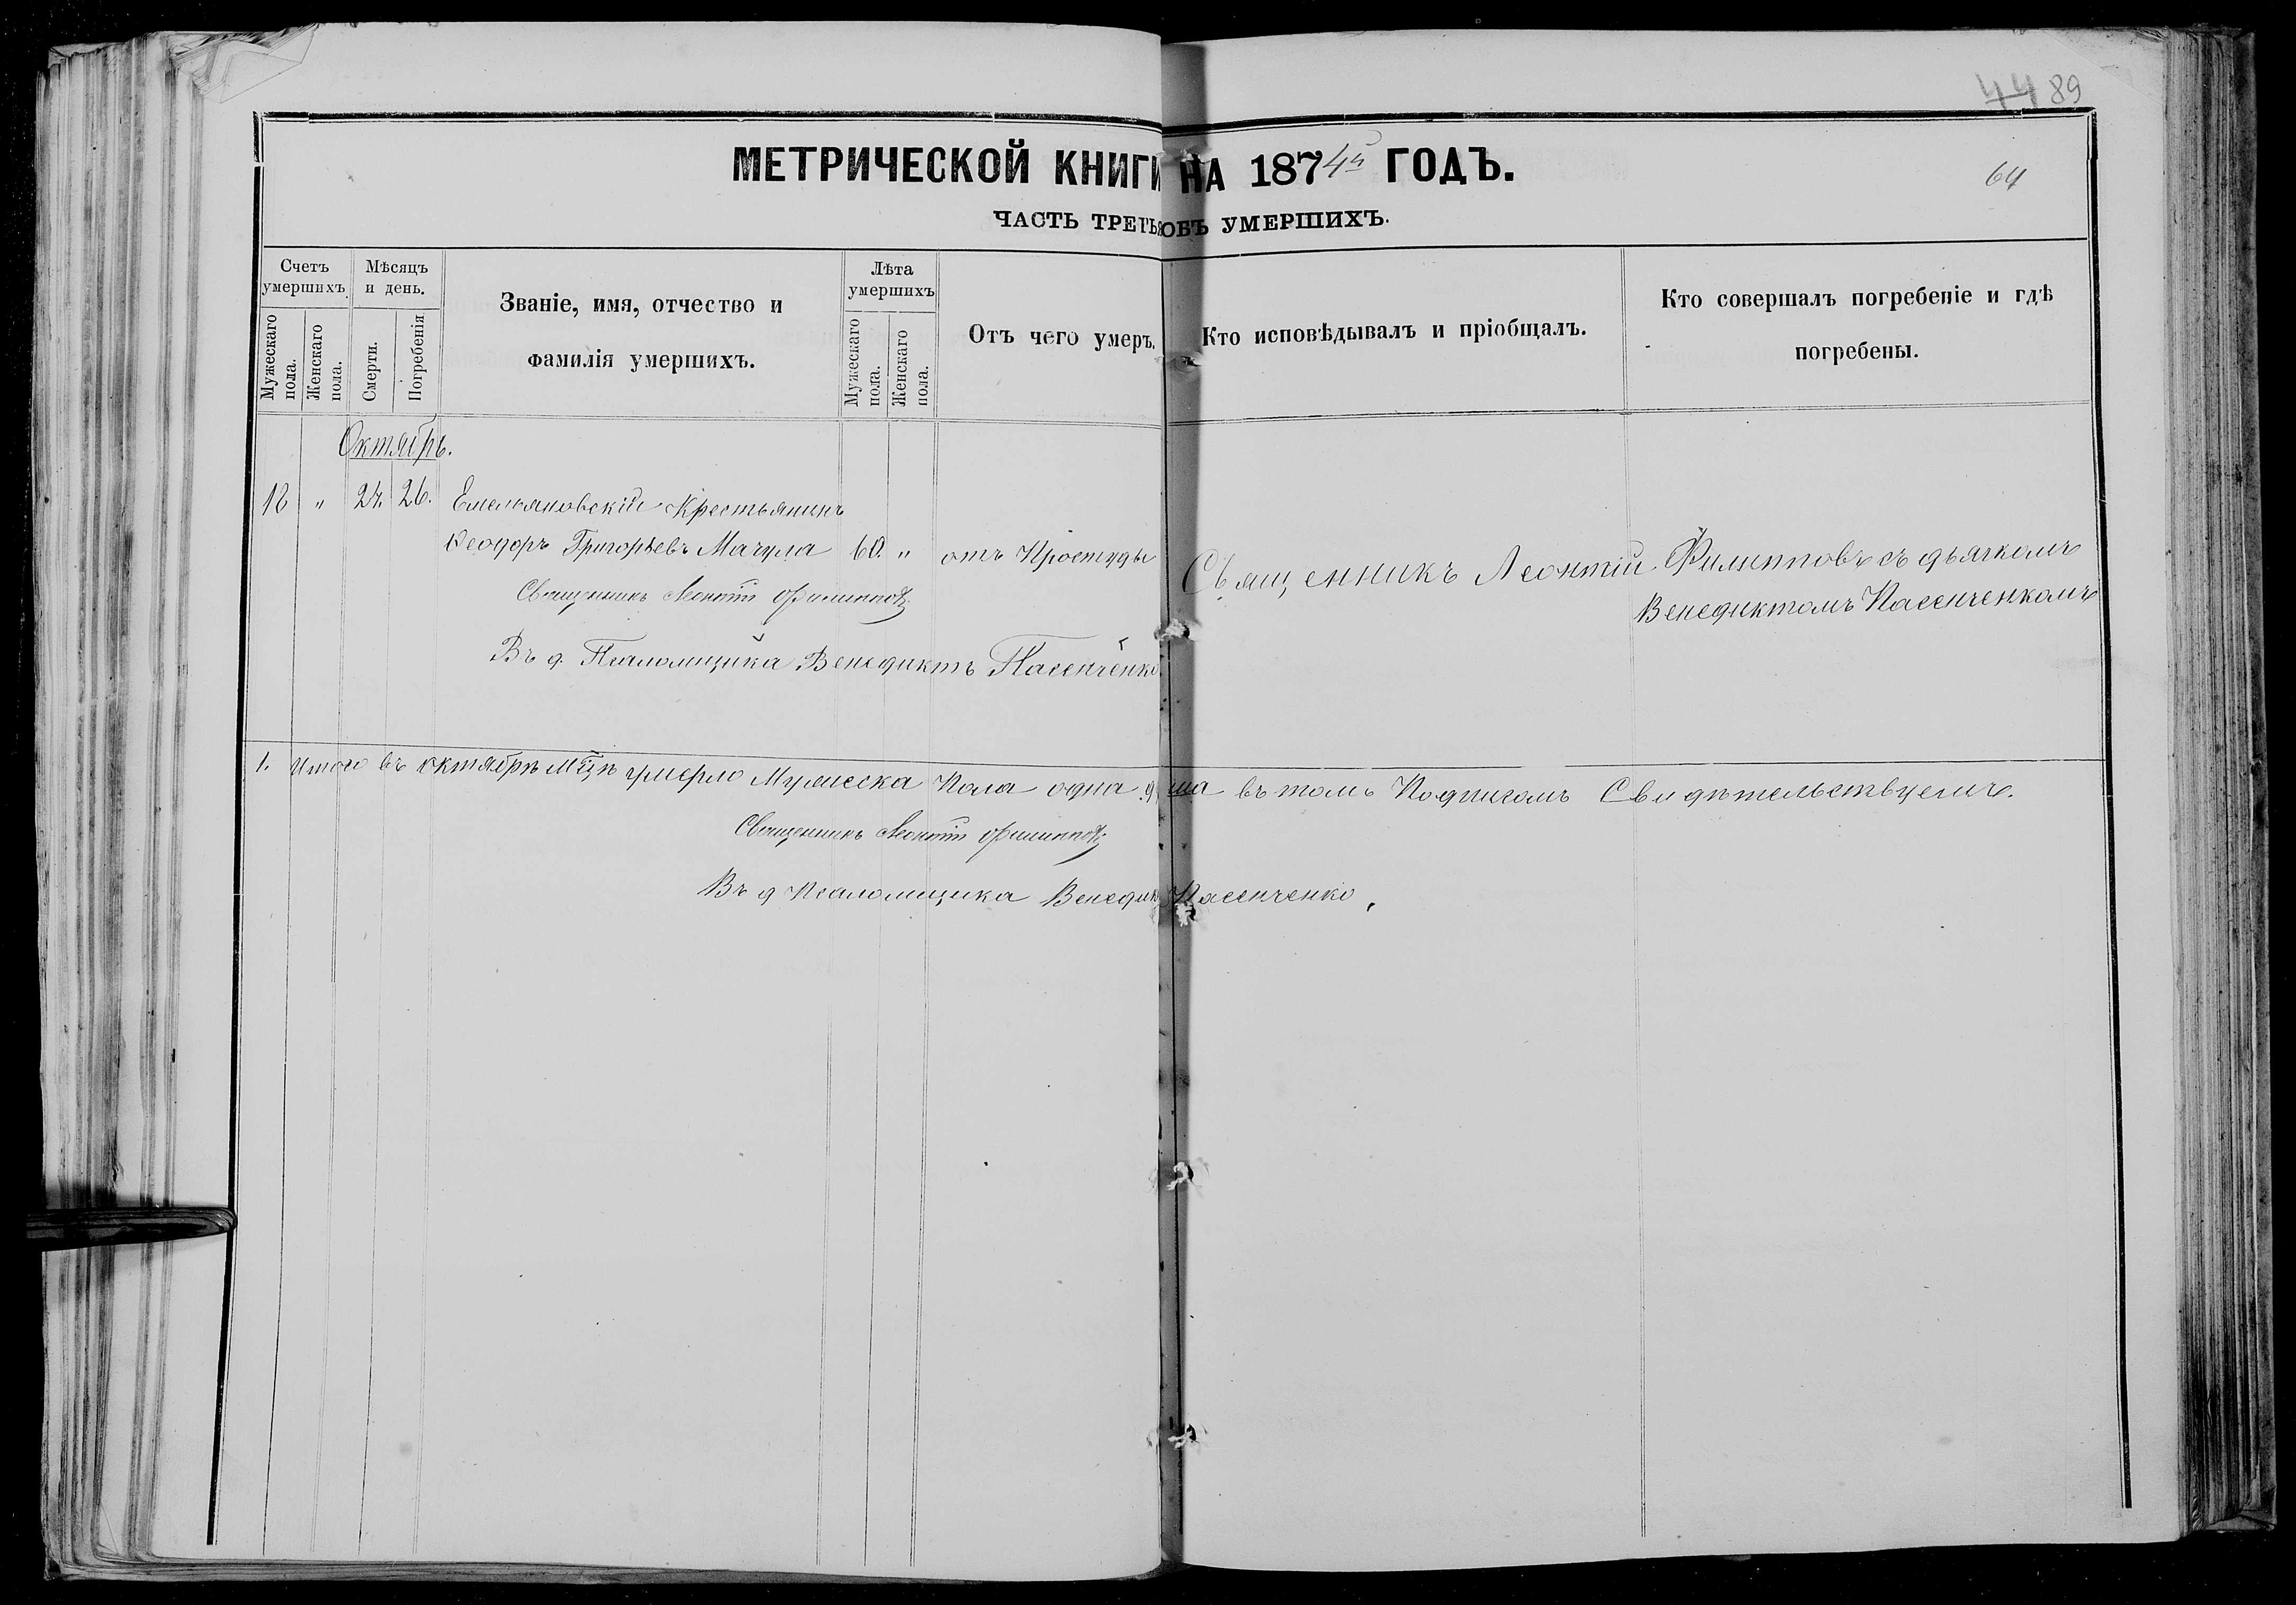 44 89
МЕТРИЧЕСКОЙ КНИГИ НА 1874й ГОДЪ.
64
ЧАСТЬ ТРЕТЬЯ ОБЪ УМЕРШИХЪ.
Счетъ умершихъ.
Мужескаго пола.
Женскаго пола.
Мѣсяцъ и день.
Смерти.
Погребенія
Званіе, имя, отчество и
фамилія умершихъ.
Лѣта умершихъ
Мужескаго пола.
Женскаго пола.
Отъ чего умеръ.
Кто исповѣдывалъ и пріобщалъ.
Кто совершалъ погребеніе и гдѣ
погребены.
Октябрь.
18 " 24. 26. Емельяновскій Крестьянинъ
Ѳеодоръ Григорьевъ Мачула 60. " отъ Простуды Священникъ Леонтій Филипповъ съ дьячкомъ
Венедиктомъ Пасенченкомъ
Священникъ Леонтій Филипповъ
Въ д. Псаломщика Венедиктъ Пасенченко
1. Итого въ октябрѣ мцѣ умерло Мужеска Пола одна душа въ томъ Подписомъ Свидѣтельствуемъ.
Священникъ Леонтій Филипповъ
Въ д Псаломщика Венедик Пасенченко